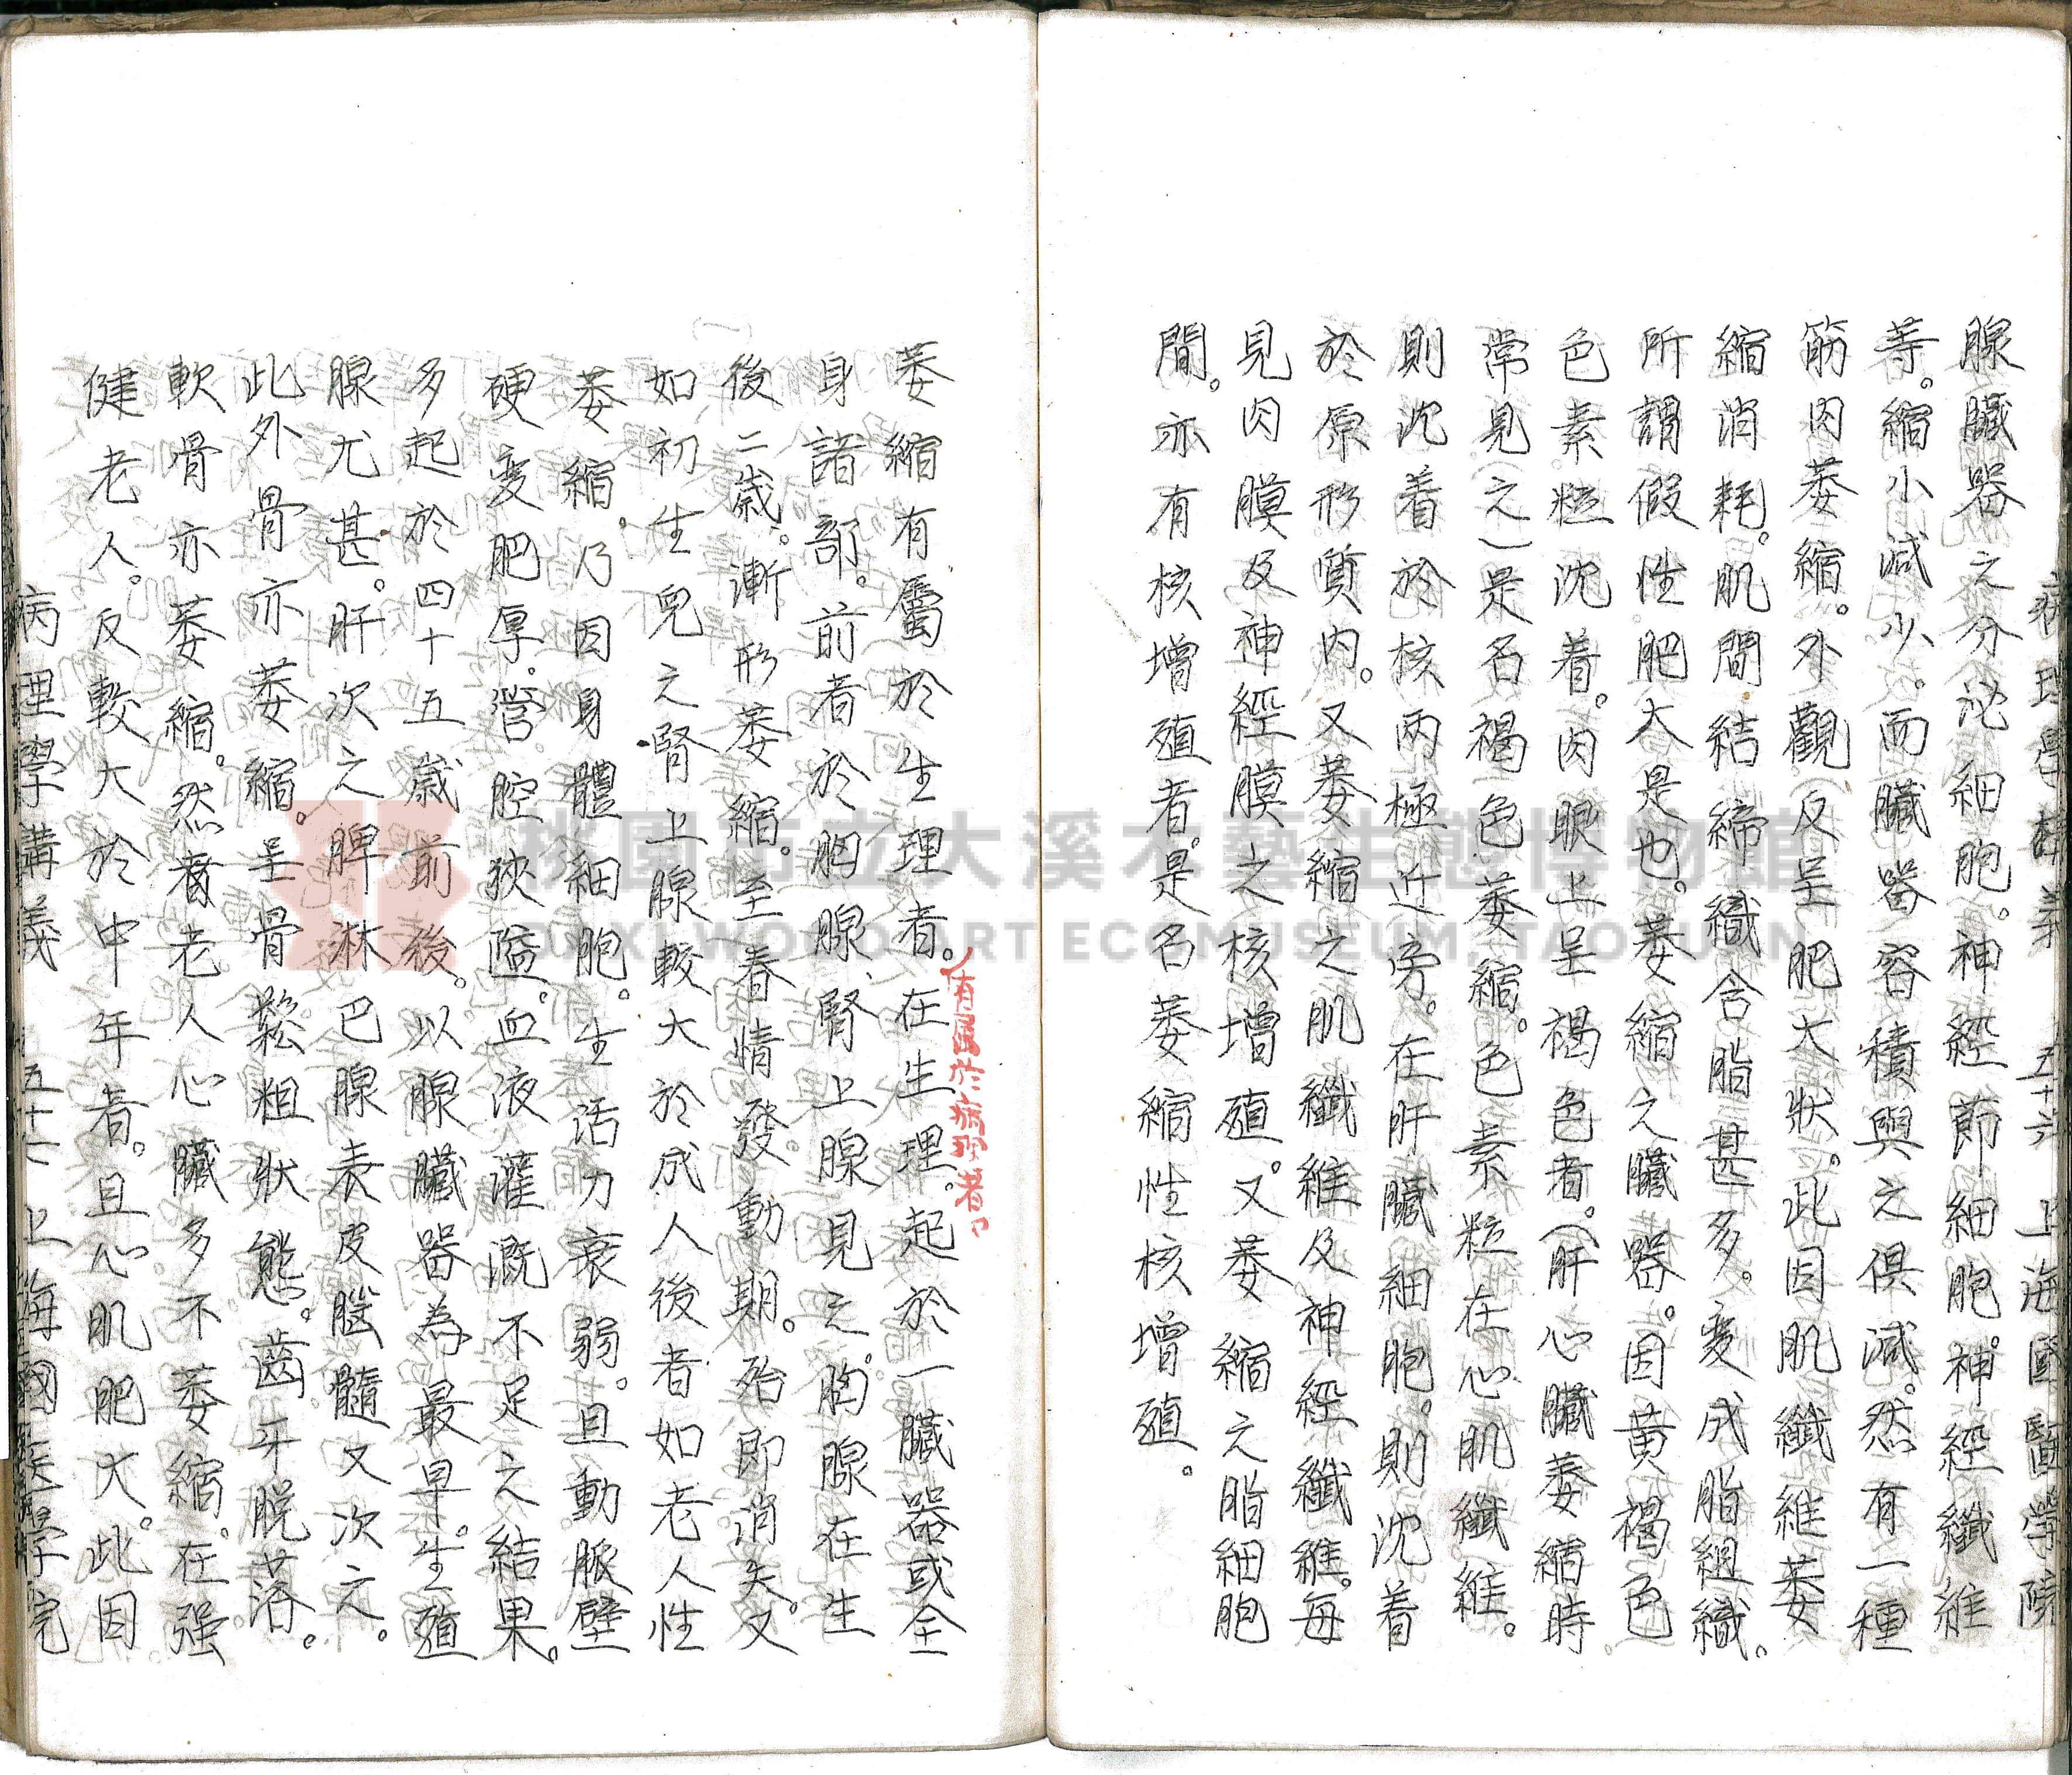 病理學講義 五十六 上海國醫學院
腺臟器之分泌細胞。神經節細胞。神經纖維
等。縮小減少。而臟器容積與之俱減。然有一種
筋肉萎縮。外觀反呈肥大狀。此因肌纖維萎
縮消耗。肌間結締織含脂甚多。變成脂組織。
所謂假性肥大是也。萎縮之臟器。因黃褐色
色素粒沈着。肉眼上呈褐色者。(肝心臟萎縮時
常見之)是名褐色萎縮。色素粒在心肌纖維。
則沈着於核兩極近旁。在肝臟細胞。則沈着
於原形質內。又萎縮之肌纖維及神經纖維。每
見肉膜及神經膜之核增殖。又萎縮之脂細胞
間。亦有核增殖者。是名萎縮性核增殖。
有屬於病理者。
萎縮有屬於生理者。在生理。起於一臟器或全
身諸部。前者於胸腺、腎上腺見之。胸腺在生
後二歲。漸形萎縮。至春情發動期。殆即消失。又
如初生兒之腎上腺較大於成人後者如老人性
萎縮。乃因身體細胞。生活力衰弱。且動脈壁
硬變肥厚。管腔狹隘。血液灌溉不足之結果。
多起於四十五歲前後。以腺臟器為最早。生殖
腺尤甚。肝次之脾淋巴腺表皮腦髓又次之。
此外骨亦萎縮。呈骨鬆粗狀態。齒牙脫落。
軟骨亦萎縮。然耆老人心臟多不萎縮。在强
健老人。反較大於中年者。且心肌肥大。此因
病理學講義 五十七 上海國医學院
桃園市立大溪木藝生態博物館
DAXI WOOD ART ECOMUSEUM, TAOYUAN